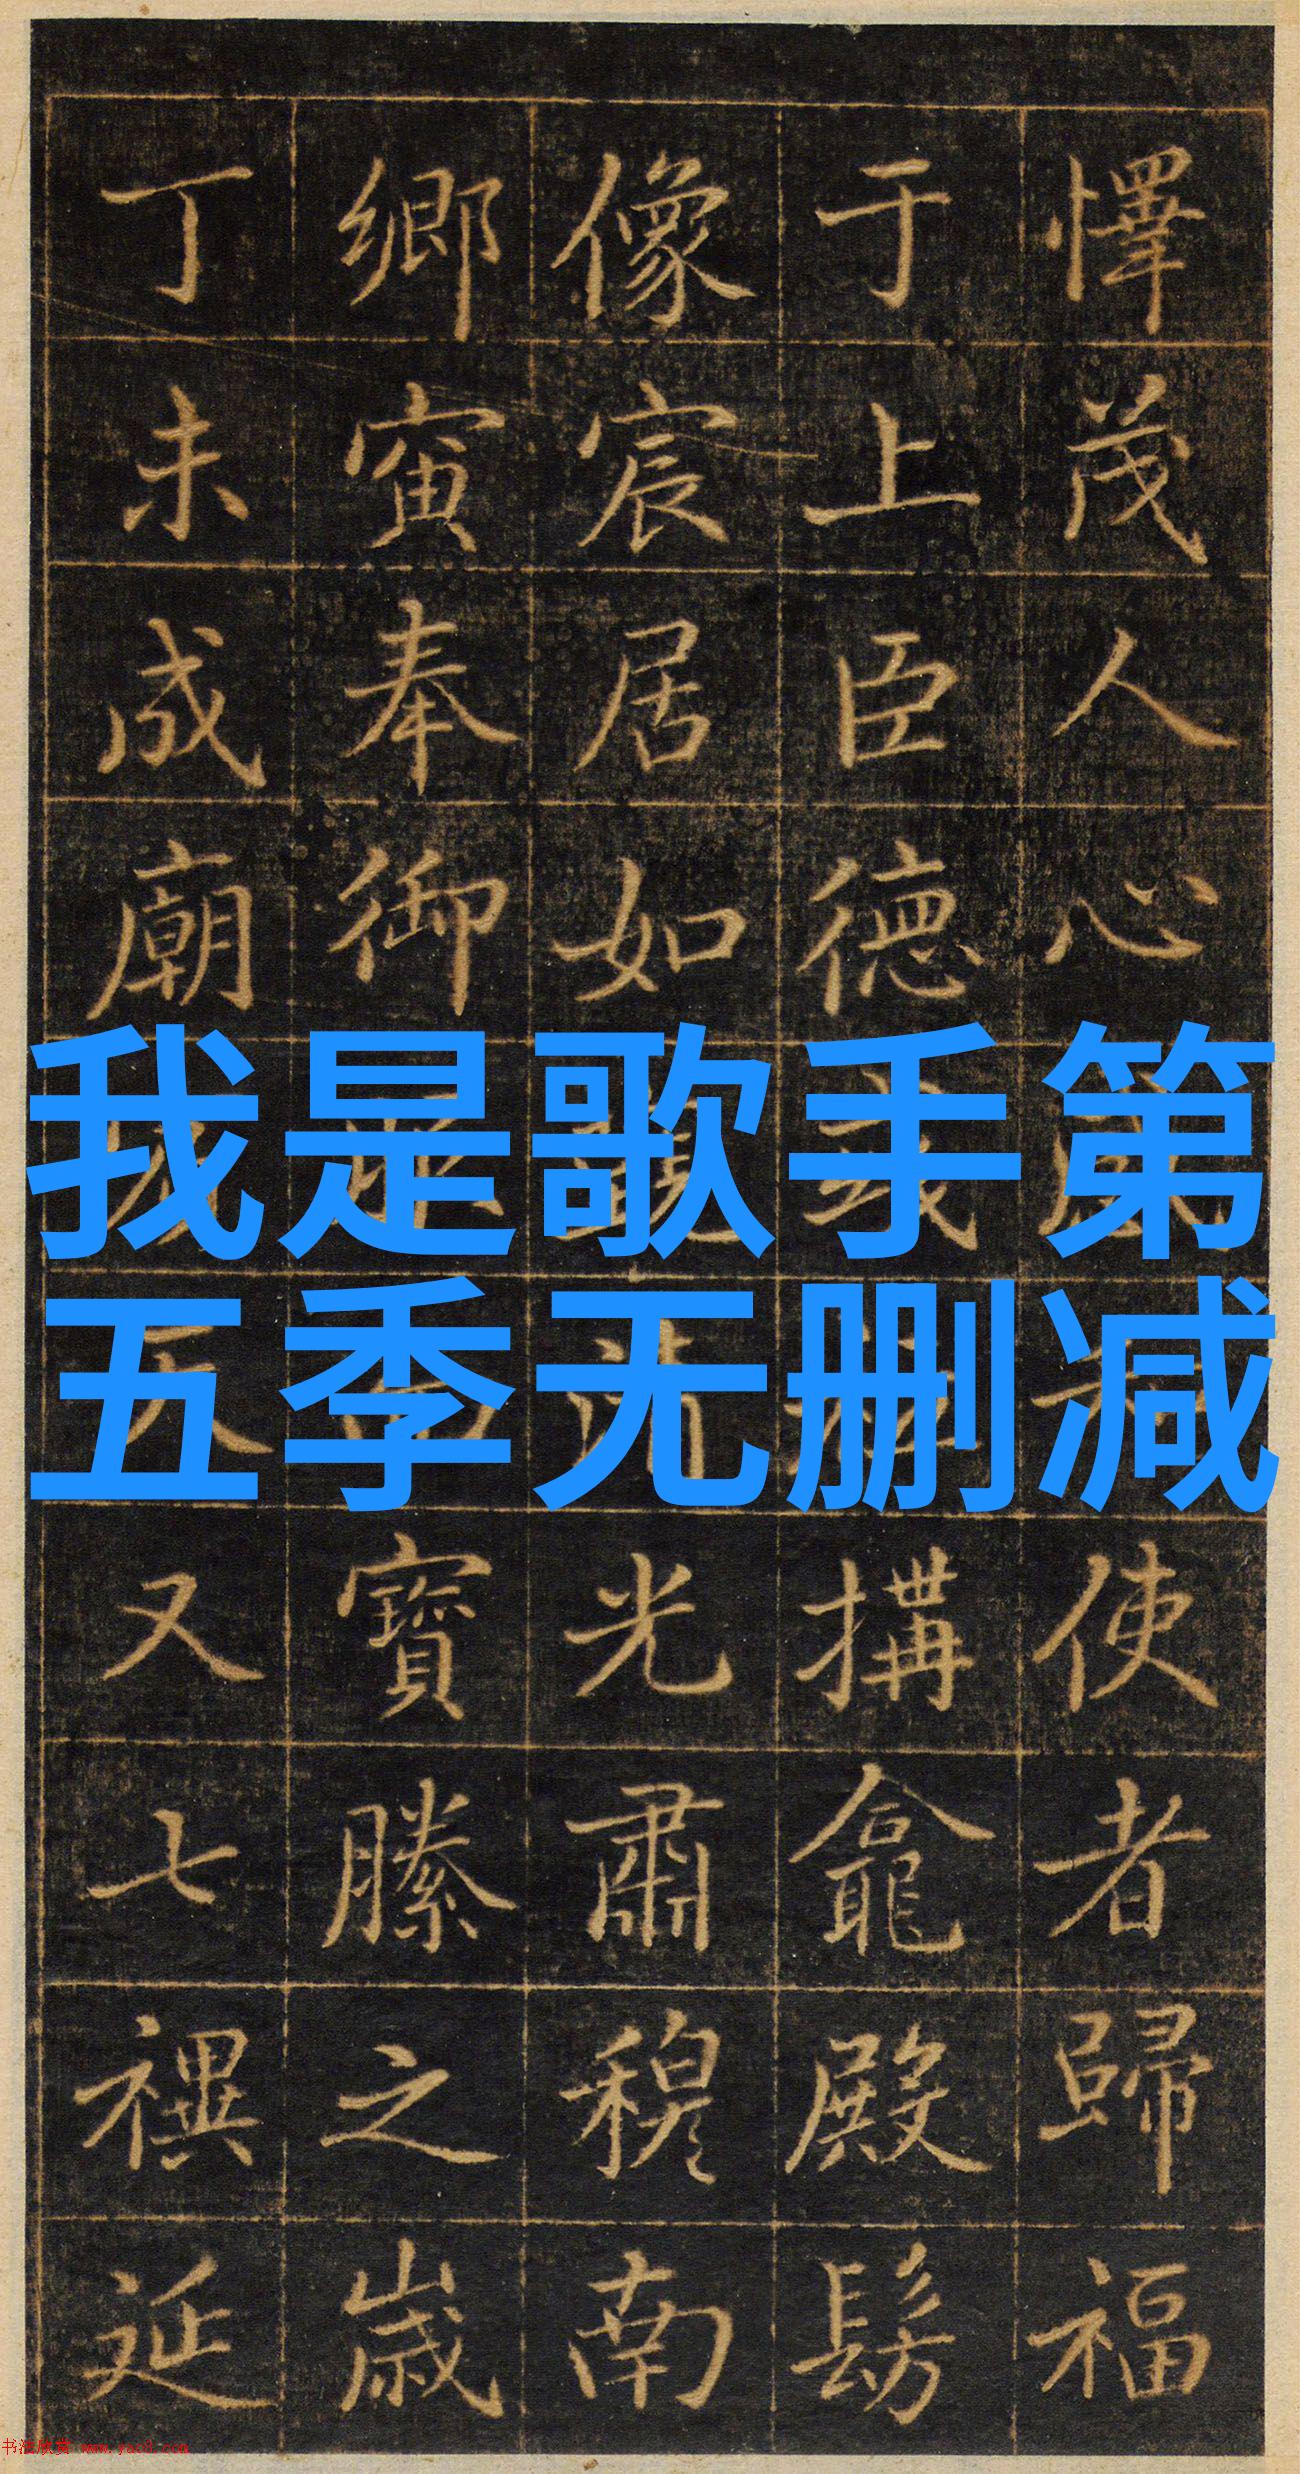 懌茂人心使者歸福
于上臣德搆龕殿髣
像宸居如光肅穆南
鄉寅奉御寶縢之歲
丁未成廟又七禩延
我是歌手第
五季无删减
书法欣赏 www.yac8.com